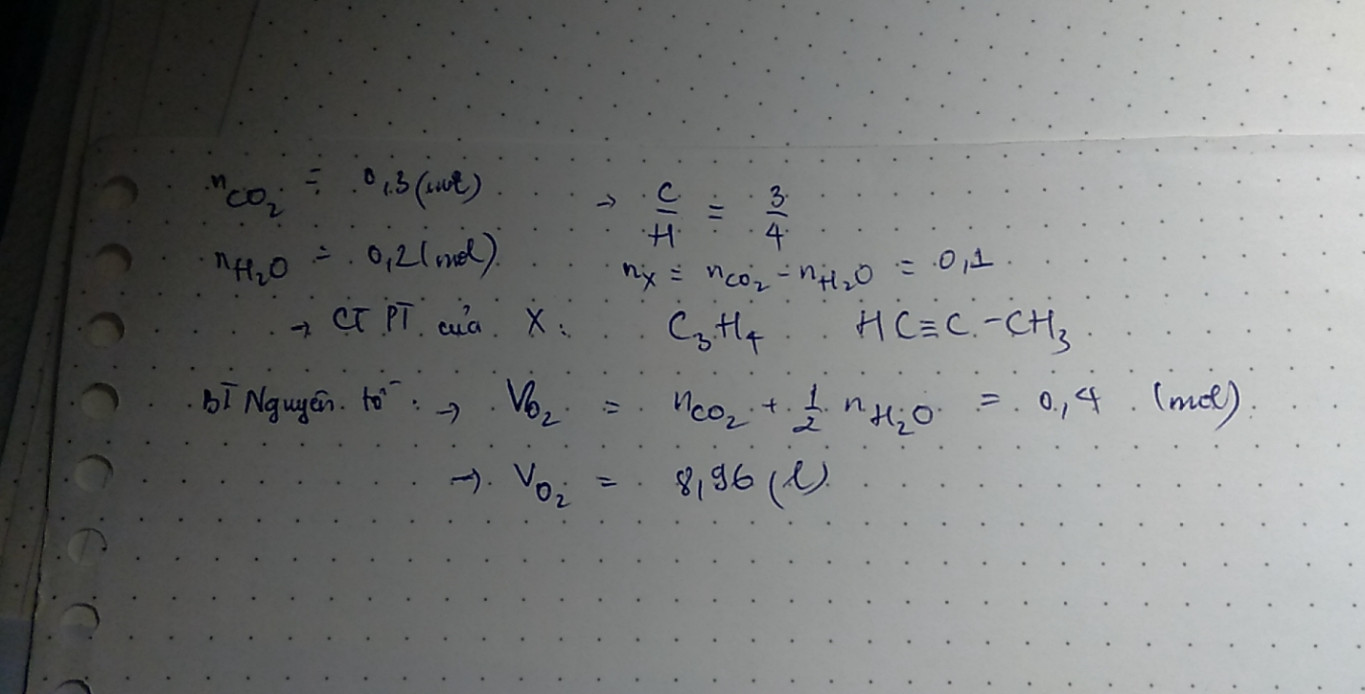 nCO₂ = 0,3 (mol) → C/H = 3/4
nH₂O = 0,2 (mol) nX = nCO₂ - nH₂O = 0,1
→ CTPT của X: C₃H₄ HC≡C-CH₃
BT Nguyên tố: → VO₂ = nCO₂ + 1/2 nH₂O = 0,4 (mol)
→ VO₂ = 8,96 (l)